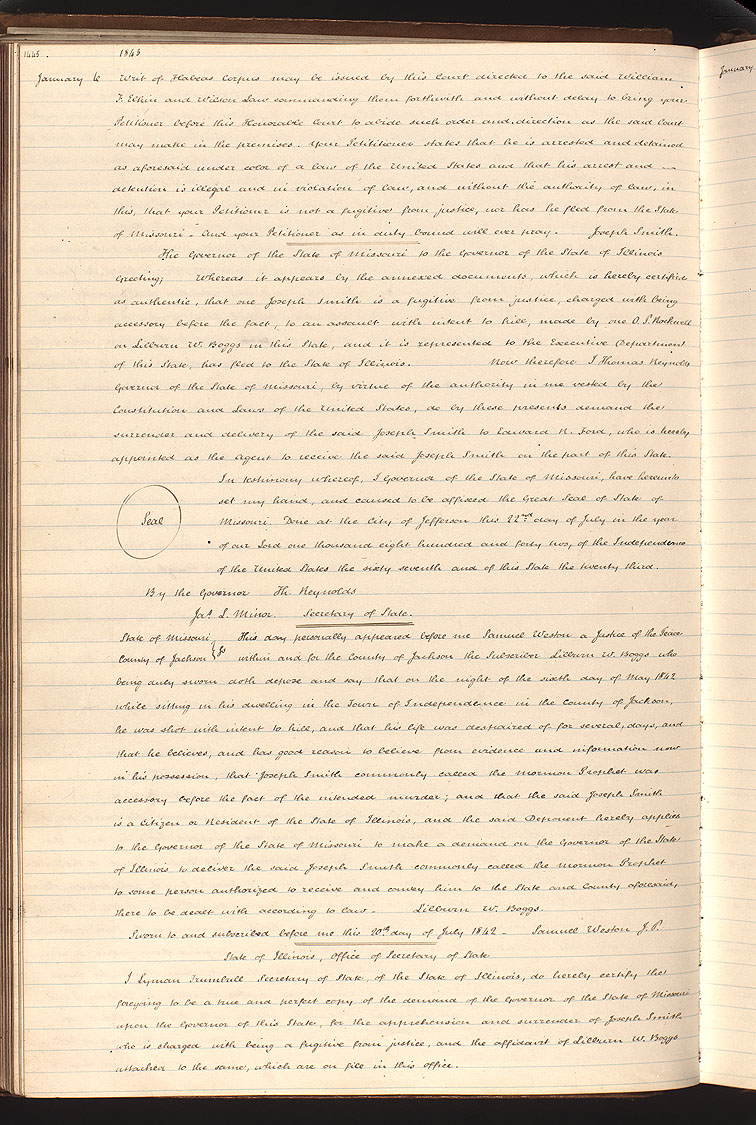 1445.
1843
January 6 Writ of Habeas Corpus may be issued by this Court directed to the said William
F. Elkin and Wilson Law commanding them forthwith and without delay to bring your
Petitioner before this Honorable Court to abide such order and direction as the said Court
may make in the premises. Your Petititioner states that he is arrested and detained
as aforesaid under color of a law of the United States and that his arrest and
detention is illegal and in violation of law, and without the authority of law, in
this, that your Petitioner is not a fugitive from justice, nor has he fled from the State
of Missouri. And your Petitioner as in duty bound will ever pray. Joseph Smith.
The Governor of the State of Missouri to the Governor of the State of Illinois
Greeting; Whereas it appears by the annexed documents, which is hereby certified
as authentic, that one Joseph Smith is a fugitive from justice, charged with being
accessory before the fact, to an assault with intent to kill, made by one O. P. Rockwell
on Lilburn W. Boggs in this State, and it is represented to the Executive Department
of this State, has fled to the State of Illinois. Now therefore I Thomas Reynolds
Governor of the State of Missouri, by virtue of the authority in me vested by the
Constitution and Laws of the United States, do by these presents demand the
surrender and delivery of the said Joseph Smith to Edward R. Ford, who is hereby
appointed as the agent to receive the said Joseph Smith on the part of this State.
In testimony whereof, I Governor of the State of Missouri, have hereunto
set my hand, and caused to be affixed the Great Seal of State of
Seal Missouri. Done at the City of Jefferson this 22nd day of July in the year
of our Lord one thousand eight hundred and forty two, of the Independence
of the United States the sixty seventh and of this State the twenty third.
By the Governor Th. Reynolds
Jas. L. Minor. Secretary of State.
State of Missouri } This day personally appeared before me Samuel Weston a Justice of the Peace
County of Jackson } ss within and for the County of Jackson the Subscriber Lilburn W. Boggs who
being duly sworn doth depose and say that on the night of the sixth day of May 1842
while sitting in his dwelling in the Town of Independence in the County of Jackson,
he was shot with intent to kill, and that his life was despaired of for several days, and
that he believes, and has good reason to believe from evidence and information now
in his possession, that Joseph Smith commonly called the Mormon Prophet was
accessory before the fact of the intended murder; and that the said Joseph Smith
is a Citizen or Resident of the State of Illinois, and the said Deponent hereby applies
to the Governor of the State of Missouri to make a demand on the Governor of the State
of Illinois to deliver the said Joseph Smith commonly called the Mormon Prophet
to some person authorized to receive and convey him to the State and County aforesaid,
there to be dealt with according to law - Lilburn W. Boggs.
Sworn to and subscribed before me this 20th day of July 1842 - Samuel Weston J. P.
State of Illinois, Office of Secretary of State
I Lyman Trumbull Secretary of State, of the State of Illinois, do hereby certify the
foregoing to be a true and perfect copy of the demand of the Governor of the State of Missouri
upon the Governor of this State, for the apprehension and surrender of Joseph Smith
who is charged with being a fugitive from justice, and the affidavit of Lilburn W. Boggs
attached to the same, which are on file in this office.
January